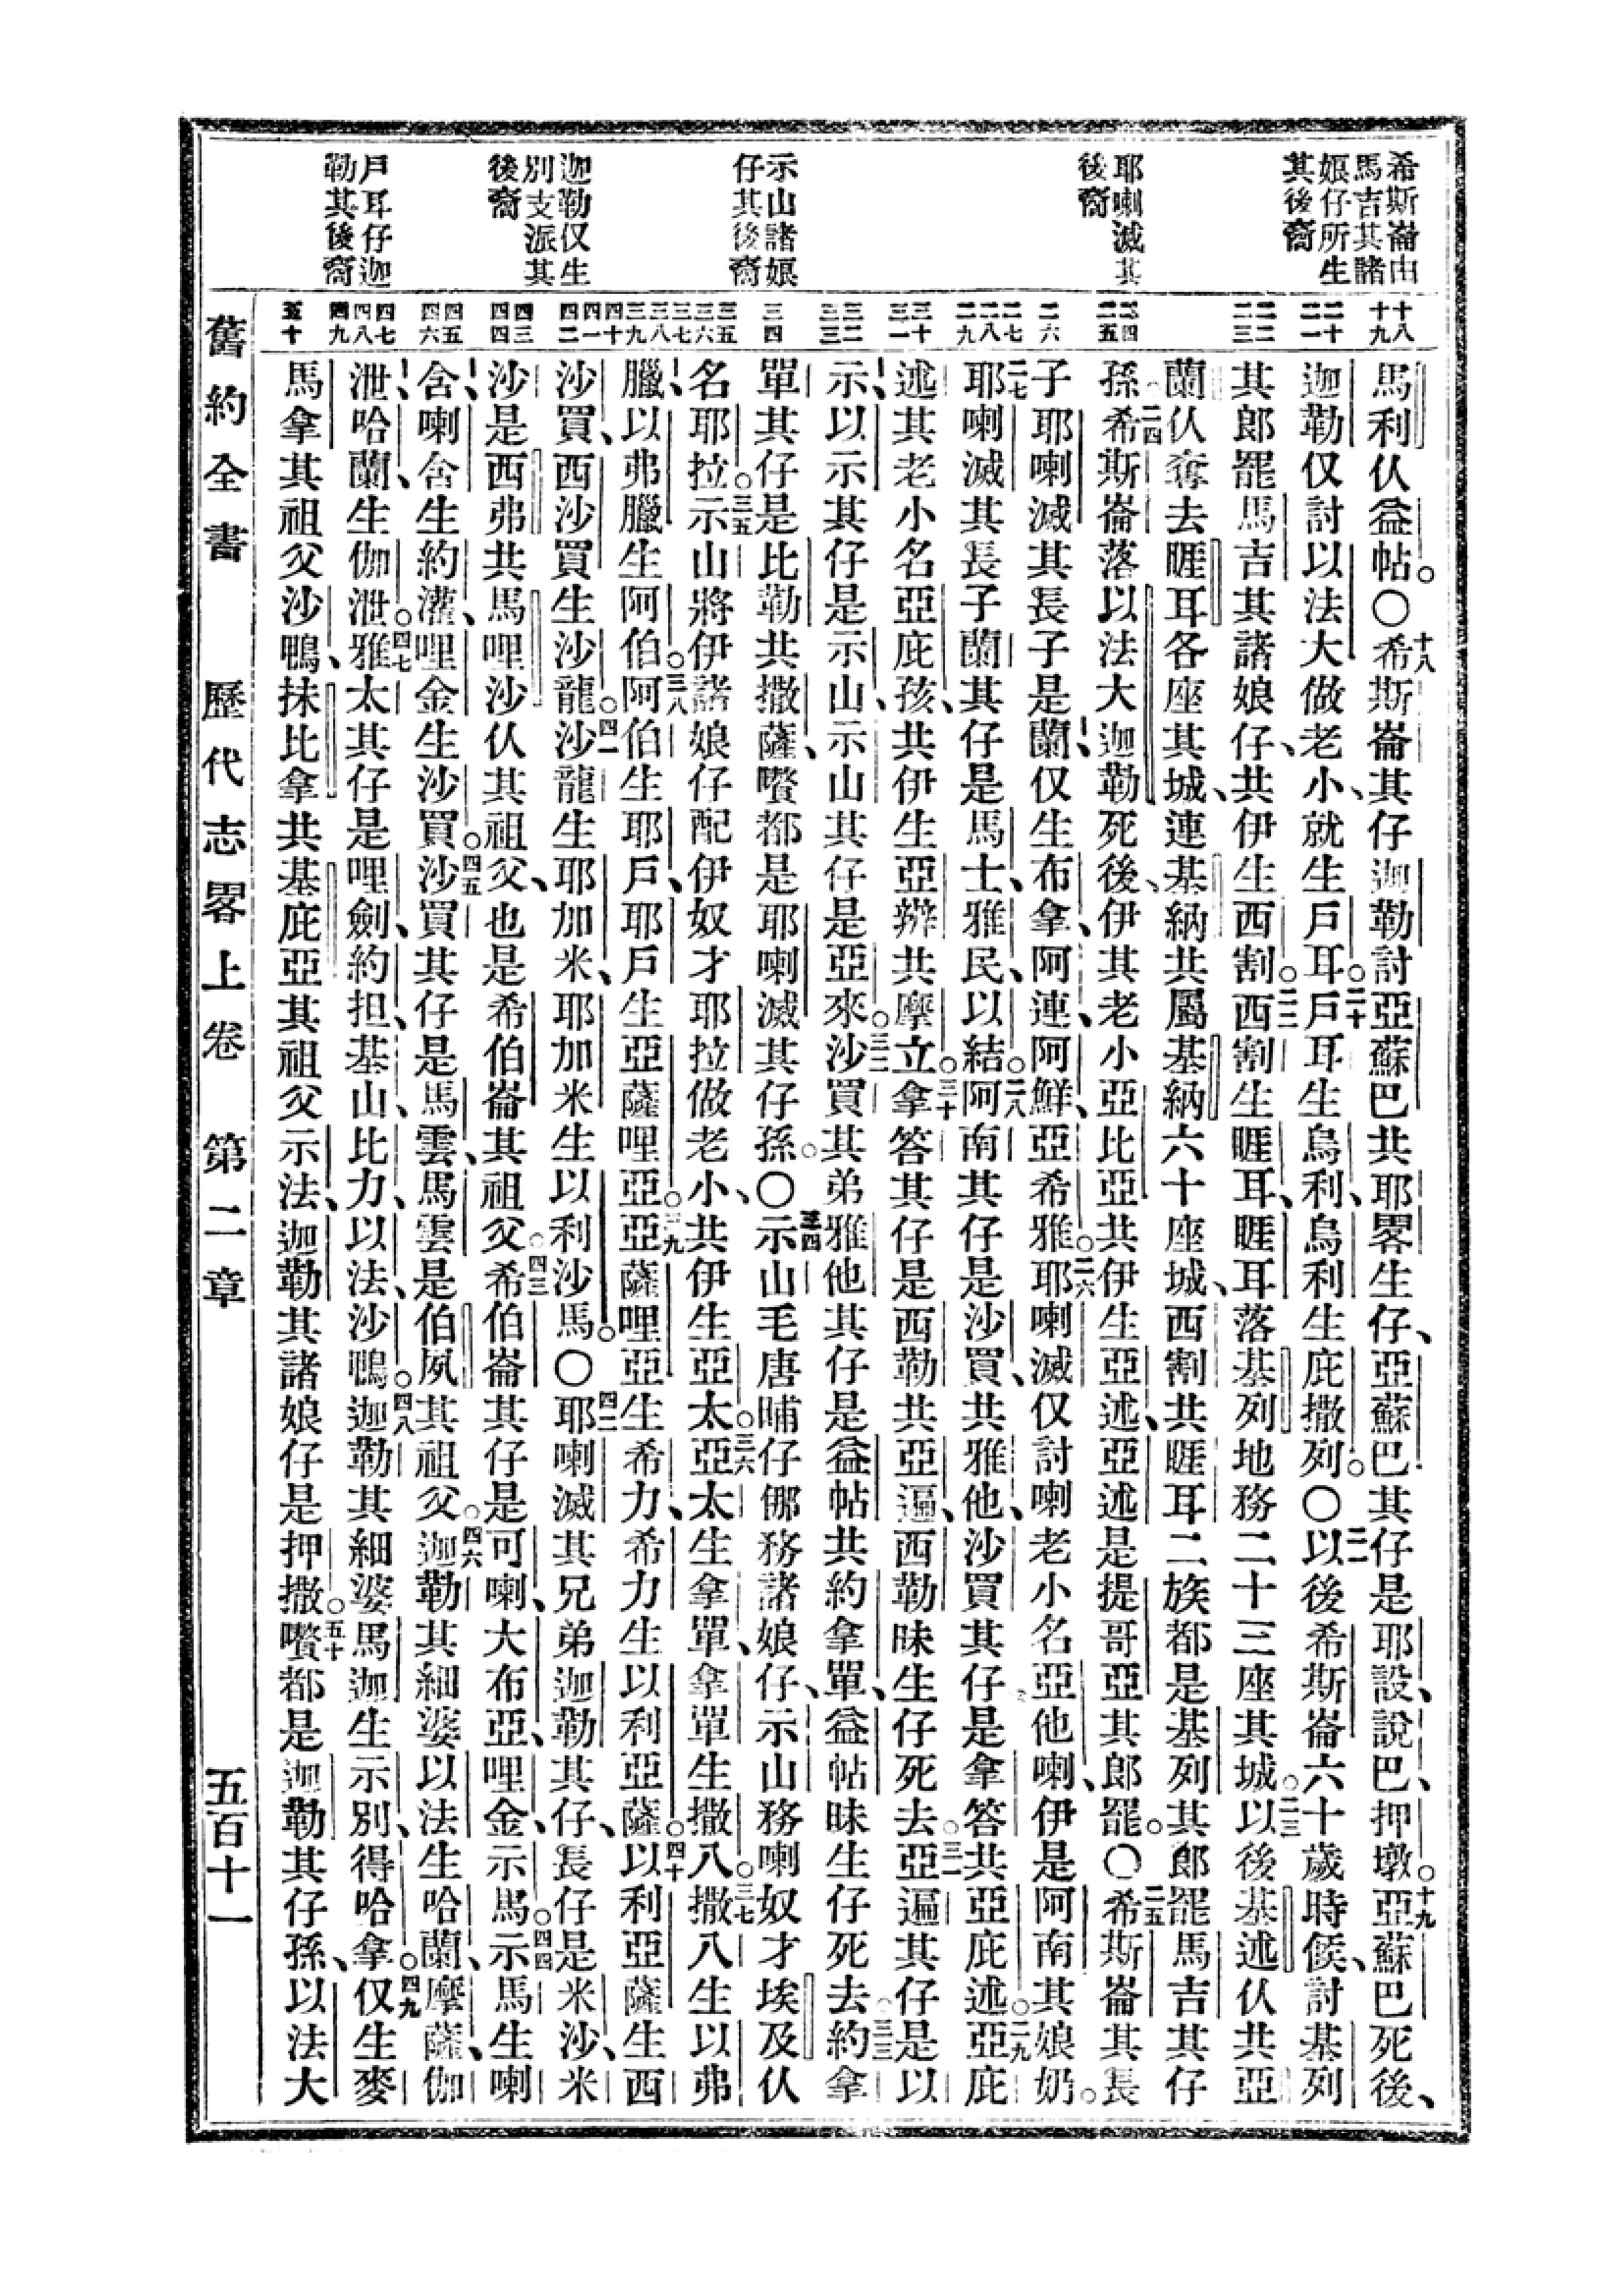 希斯崙由
馬吉其諸
娘仔所生
其後裔
耶喇滅其
後裔
示山諸娘
仔其後裔
迦勒仅生
別支派其
後裔
戶耳仔迦
勒其後裔
十八
十九
二十
二一
二二
二三
二四
二五
二六
二七
二八
二九
三十
三一
三二
三三
三四
三五
三六
三七
三八
三九
四十
四一
四二
四三
四四
四五
四六
四七
四八
四九
五十
馬利仈益帖。〇十八希斯崙其仔迦勒討亞蘇巴共耶畧生仔、亞蘇巴其仔是耶設、說巴、押墩。十九亞蘇巴死後、
迦勒仅討以法大做老小、就生戶耳。二十戶耳生烏利、烏利生庇撒列。〇二一以後希斯崙六十歲時候、討基列
其郎罷馬吉其諸娘仔、共伊生西割。二二西割生睚耳、睚耳落基列地務二十三座其城。二三以後基述仈共亞
蘭仈奪去睚耳各座其城、連基納共屬基納六十座城、西割共睚耳二族都是基列其郎罷馬吉其仔
孫。二四希斯崙落以法大迦勒死後、伊其老小亞比亞共伊生亞述、亞述是提哥亞其郎罷。〇二五希斯崙其長
子耶喇滅其長子是蘭、仅生布拿、阿連、阿鮮、亞希雅。二六耶喇滅仅討喇老小名亞他喇、伊是阿南其娘奶。
二七耶喇滅其長子蘭其仔是馬士、雅民、以結。二八阿南其仔是沙買、共雅他、沙買其仔是拿答共亞庇述。二九亞庇
述其老小名亞庇孩、共伊生亞辦共摩立。三十拿答其仔是西勒共亞遍、西勒昧生仔死去。三一亞遍其仔是以
示、以示其仔是示山、示山其仔是亞來。三二沙買其弟雅他其仔是益帖共約拿單、益帖昧生仔死去。三三約拿
單其仔是比勒共撒薩、嚽都是耶喇滅其仔孫。〇三四示山毛唐晡仔㑚務諸娘仔、示山務喇奴才埃及仈
名耶拉。三五示山將伊諸娘仔配伊奴才耶拉做老小、共伊生亞太。三六亞太生拿單、拿單生撒八。三七撒八生以弗
臘、以弗臘生阿伯。三八阿伯生耶戶、耶戶生亞薩哩亞。三九亞薩哩亞生希力、希力生以利亞薩。四十以利亞薩生西
沙買、西沙買生沙龍。四一沙龍生耶加米、耶加米生以利沙馬。〇四二耶喇滅其兄弟迦勒其仔、長仔是米沙、米
沙是西弗共馬哩沙仈其祖父、也是希伯崙其祖父。四三希伯崙其仔是可喇、大布亞、哩金、示馬。四四示馬生喇
含、喇含生約灌、哩金生沙買。四五沙買其仔是馬雲、馬雲是伯夙其祖父。四六迦勒其細婆以法生哈蘭、摩薩、伽
泄、哈蘭、生伽泄。四七雅太其仔是哩劍、約担、基山、比力、以法、沙鴨。四八迦勒其細婆馬迦生示別、得哈拿。四九仅生麥
馬拿其祖父沙鴨、抹比拿共基庇亞其祖父示法、迦勒其諸娘仔是押撒。五十嚽都是迦勒其仔孫、以法大
舊約全書 歷代志畧上卷 第二章 五百十一